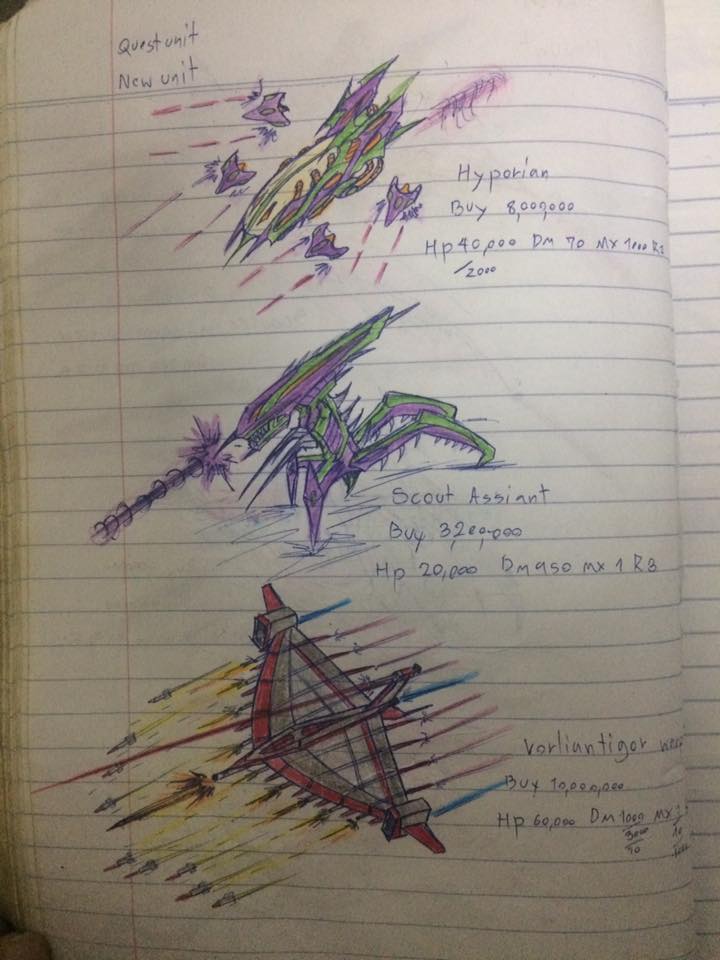 Quest unit
New unit
Hyporian
Buy 8,000,000
Hp 40,000 Dm 70 Mx 1000 R2
/2000
Scout Assiant
Buy 3,200,000
Hp 20,000 Dm 950 mx 1 R3
Vorliantigor
Buy 10,000,000
Hp 60,000 Dm 1000 Mx
3000 10
50